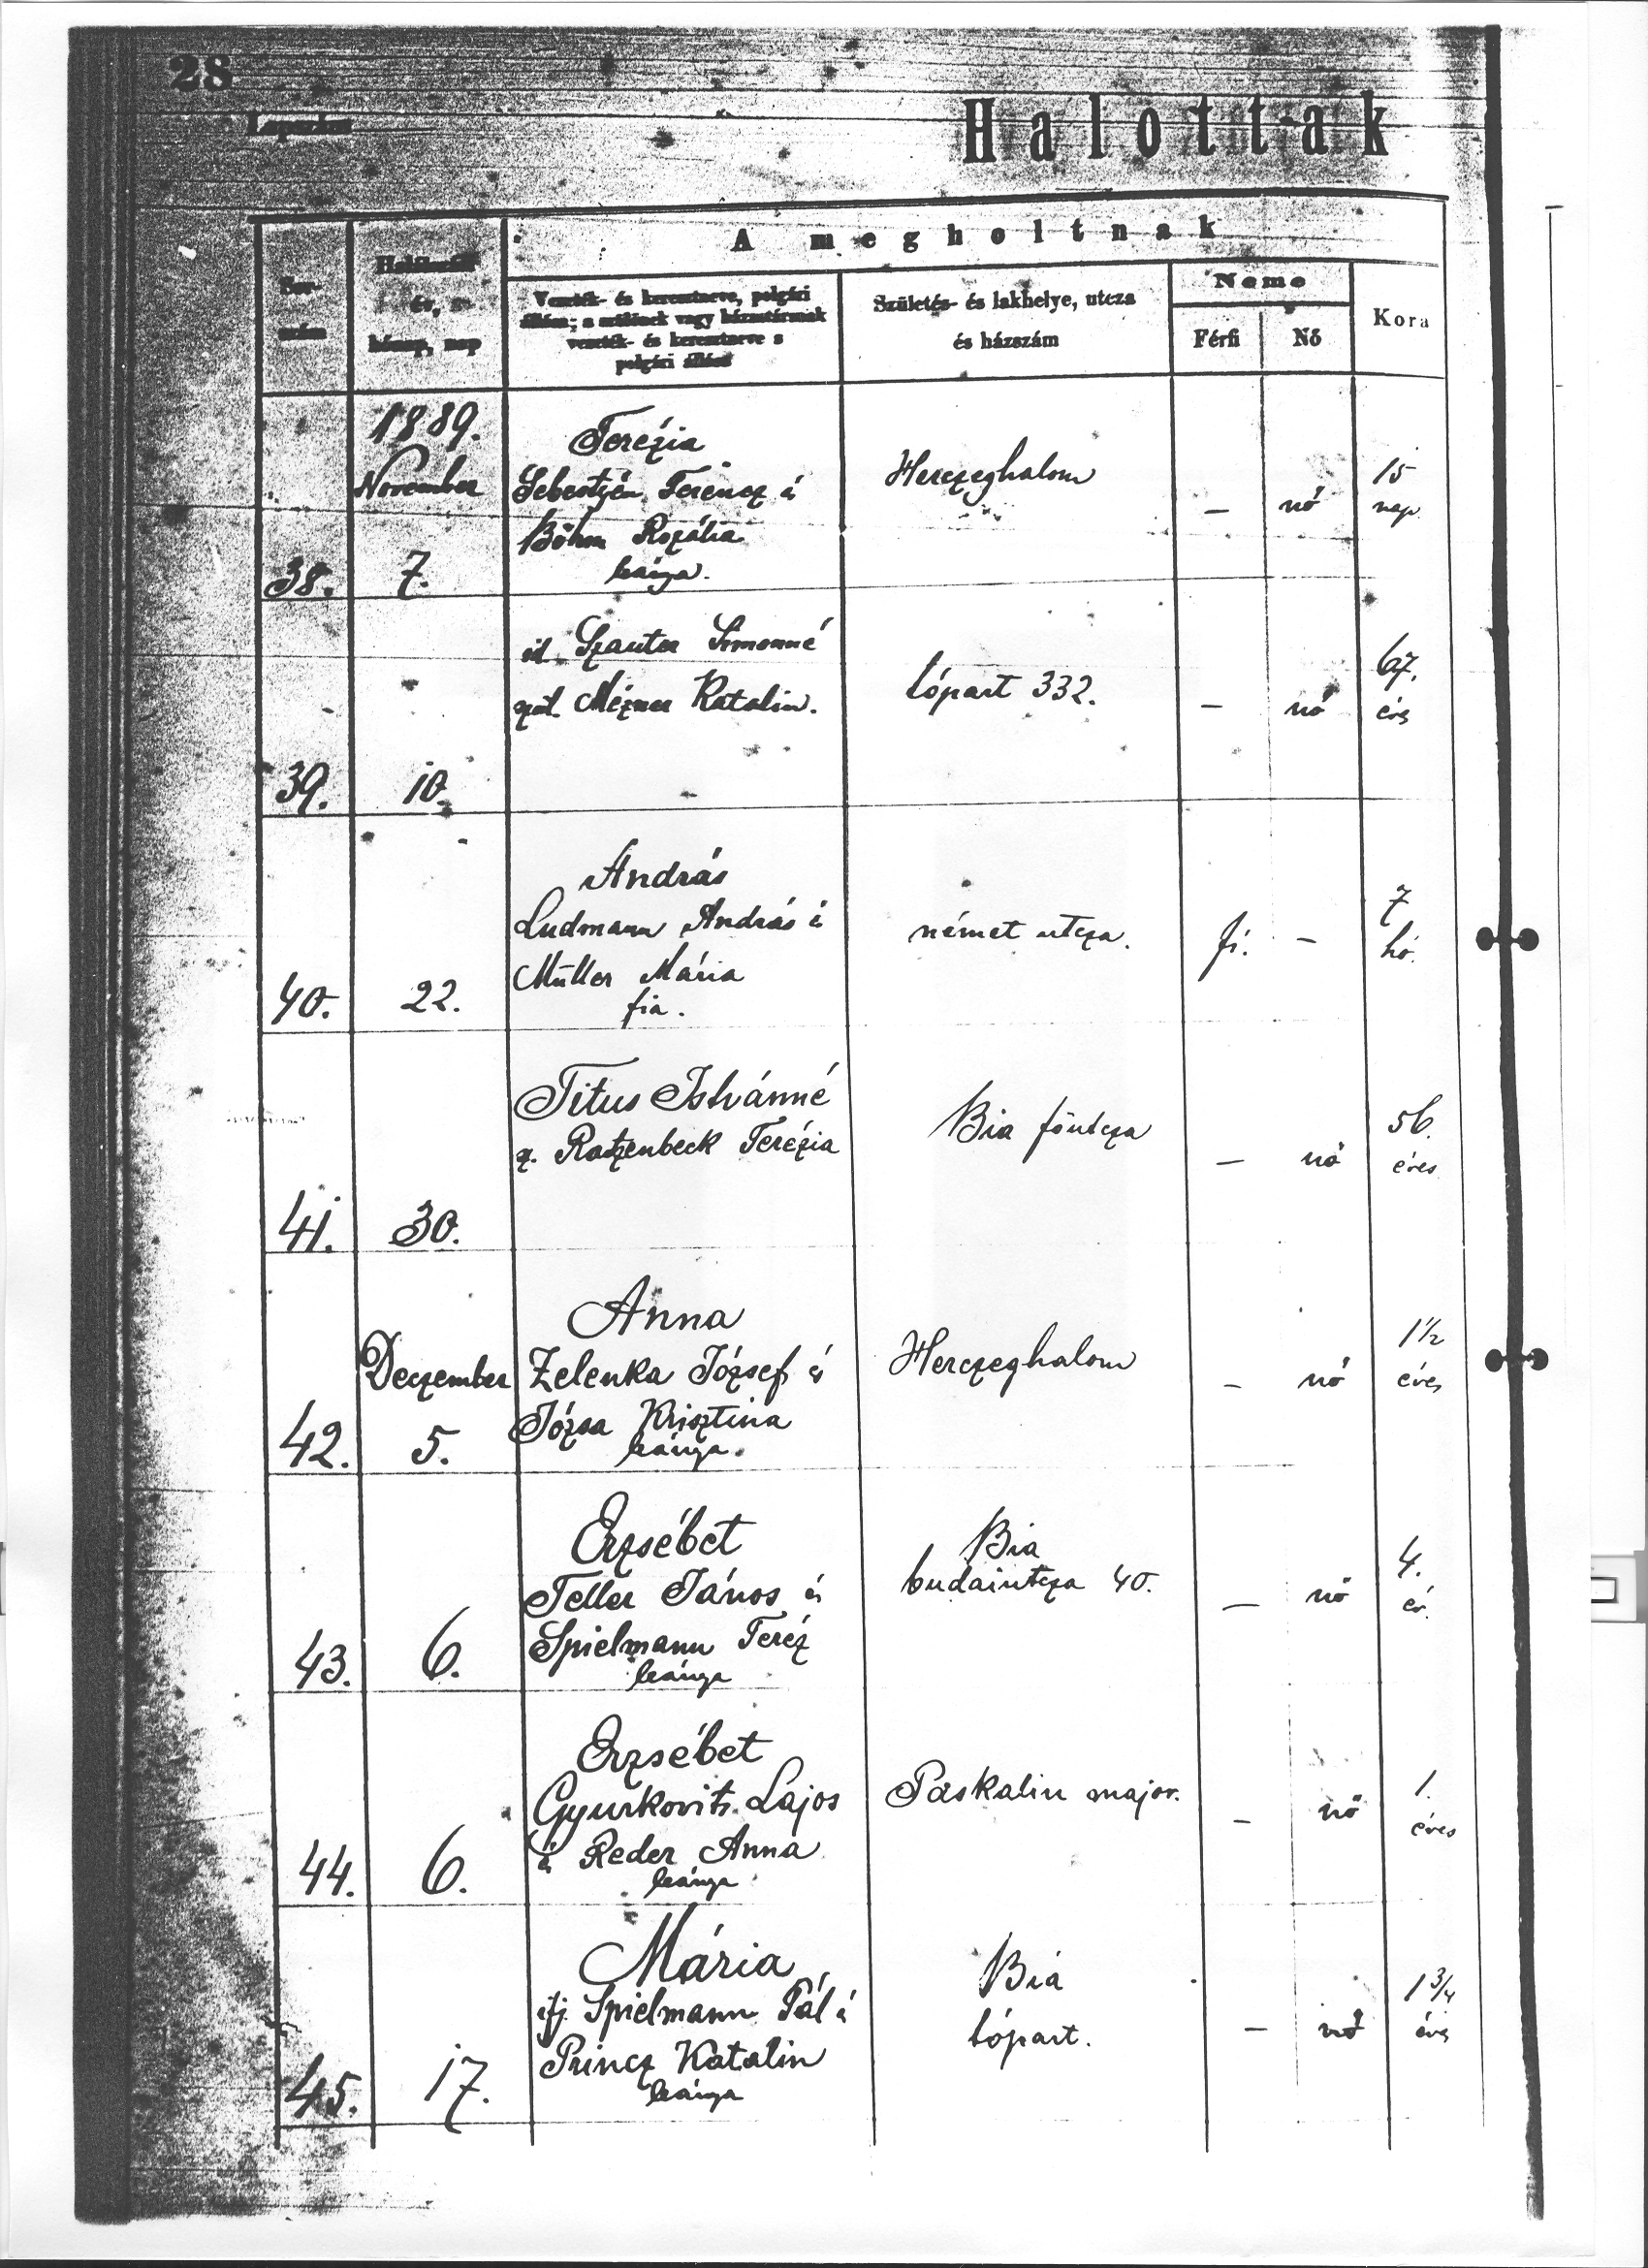 28
Lapszám
Halottak
A megholtnak
Sor-
szám
Halálozási
év,
hónap, nap
Vezeték- és keresztneve, polgári
állása; a szülőinek vagy házastársának
vezeték- és keresztneve s
polgári állása
Születés- és lakhelye, utcza
és házszám
Neme
Férfi
Nő
Kora
1889.
November
38.
7.
Terézia
Sebestyén Ferencz és
Böhm Rozália
leánya.
Herczeghalom
—
nő
15
nap.
39.
10.
id. Szauter Simonné
Mézner Katalin.
tópart 332.
—
nő
67.
éves
40.
22.
András
Ludmann András és
Müller Mária
fia.
német utcza.
fi.
—
7
hó.
41.
30.
Titus Istvánné
sz. Ratzenbeck Terézia
Bia főutcza
—
nő
56.
éves
Deczember
42.
5.
Anna
Zelenka József és
Józsa Krisztina
leánya.
Herczeghalom
—
nő
1 1/2
éves
43.
6.
Erzsébet
Teller János és
Spielmann Teréz
leánya
Bia
budaiutcza 40.
—
nő
4.
év.
44.
6.
Erzsébet
Gyurkovits Lajos
és Reder Anna
leánya
Paskalin major.
—
nő
1.
éves
45.
17.
Mária
ifj. Spielmann Pál és
Princz Katalin
leánya
Bia
tópart.
—
nő
1 3/4
éves